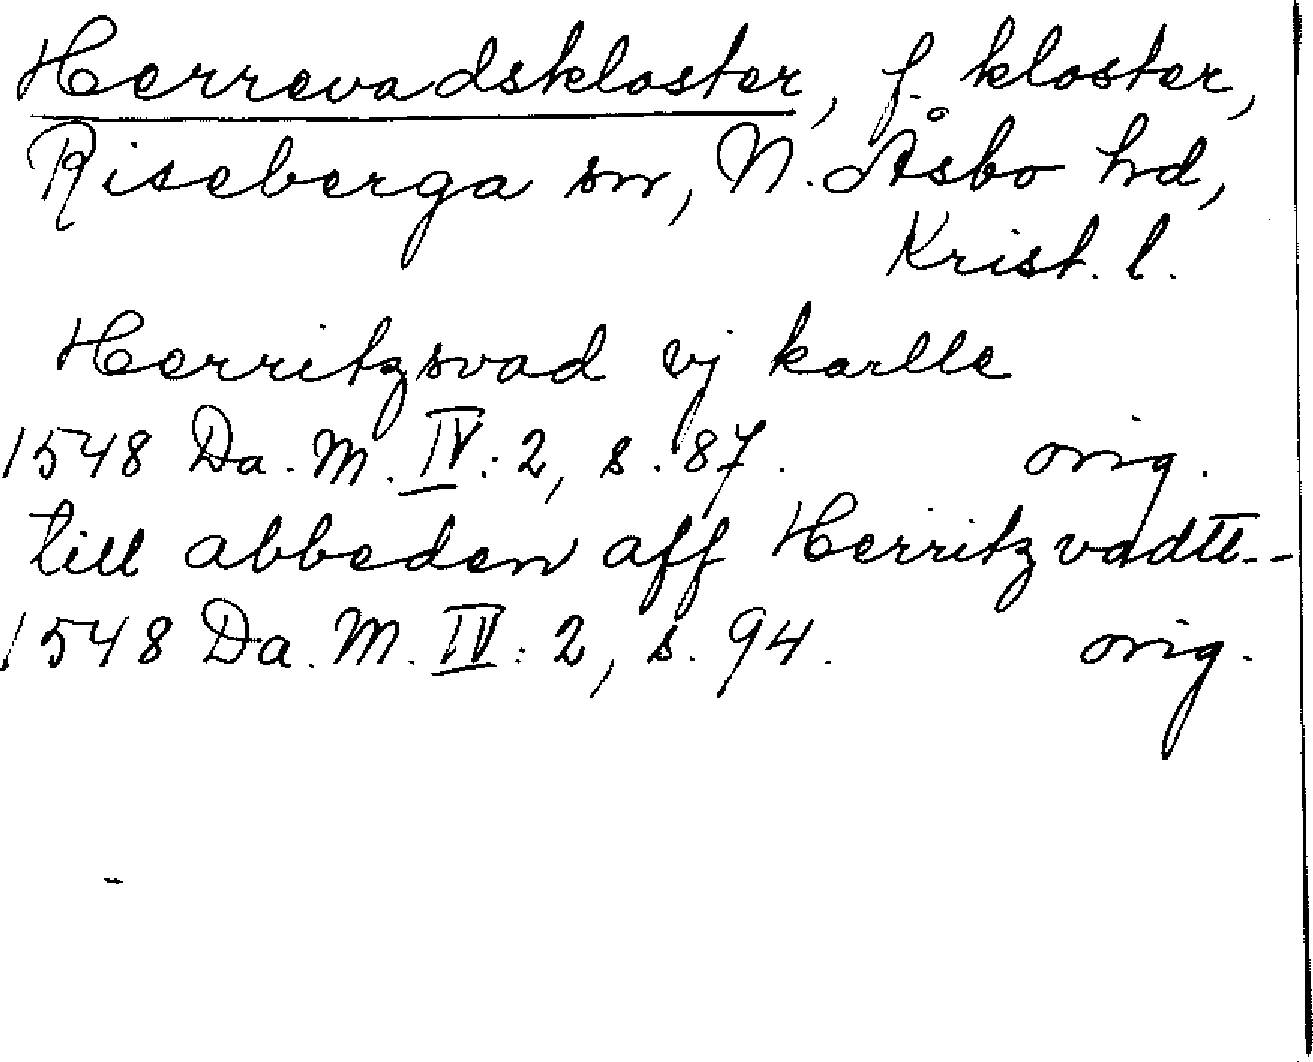 Herrevadskloster, f. kloster,
Riseberga sn, N. Åsbo hd,
Krist. l.
Herritzsvad vj karlle
1548 Da. M. IV: 2, s. 87. orig.
till abbeden aff Herritzvadtt--
1548 Da. M. IV: 2, s. 94. orig.